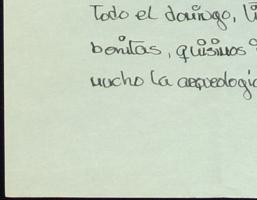 Todo el domingo, 
bonitas, quisimos
mucho la arqueología